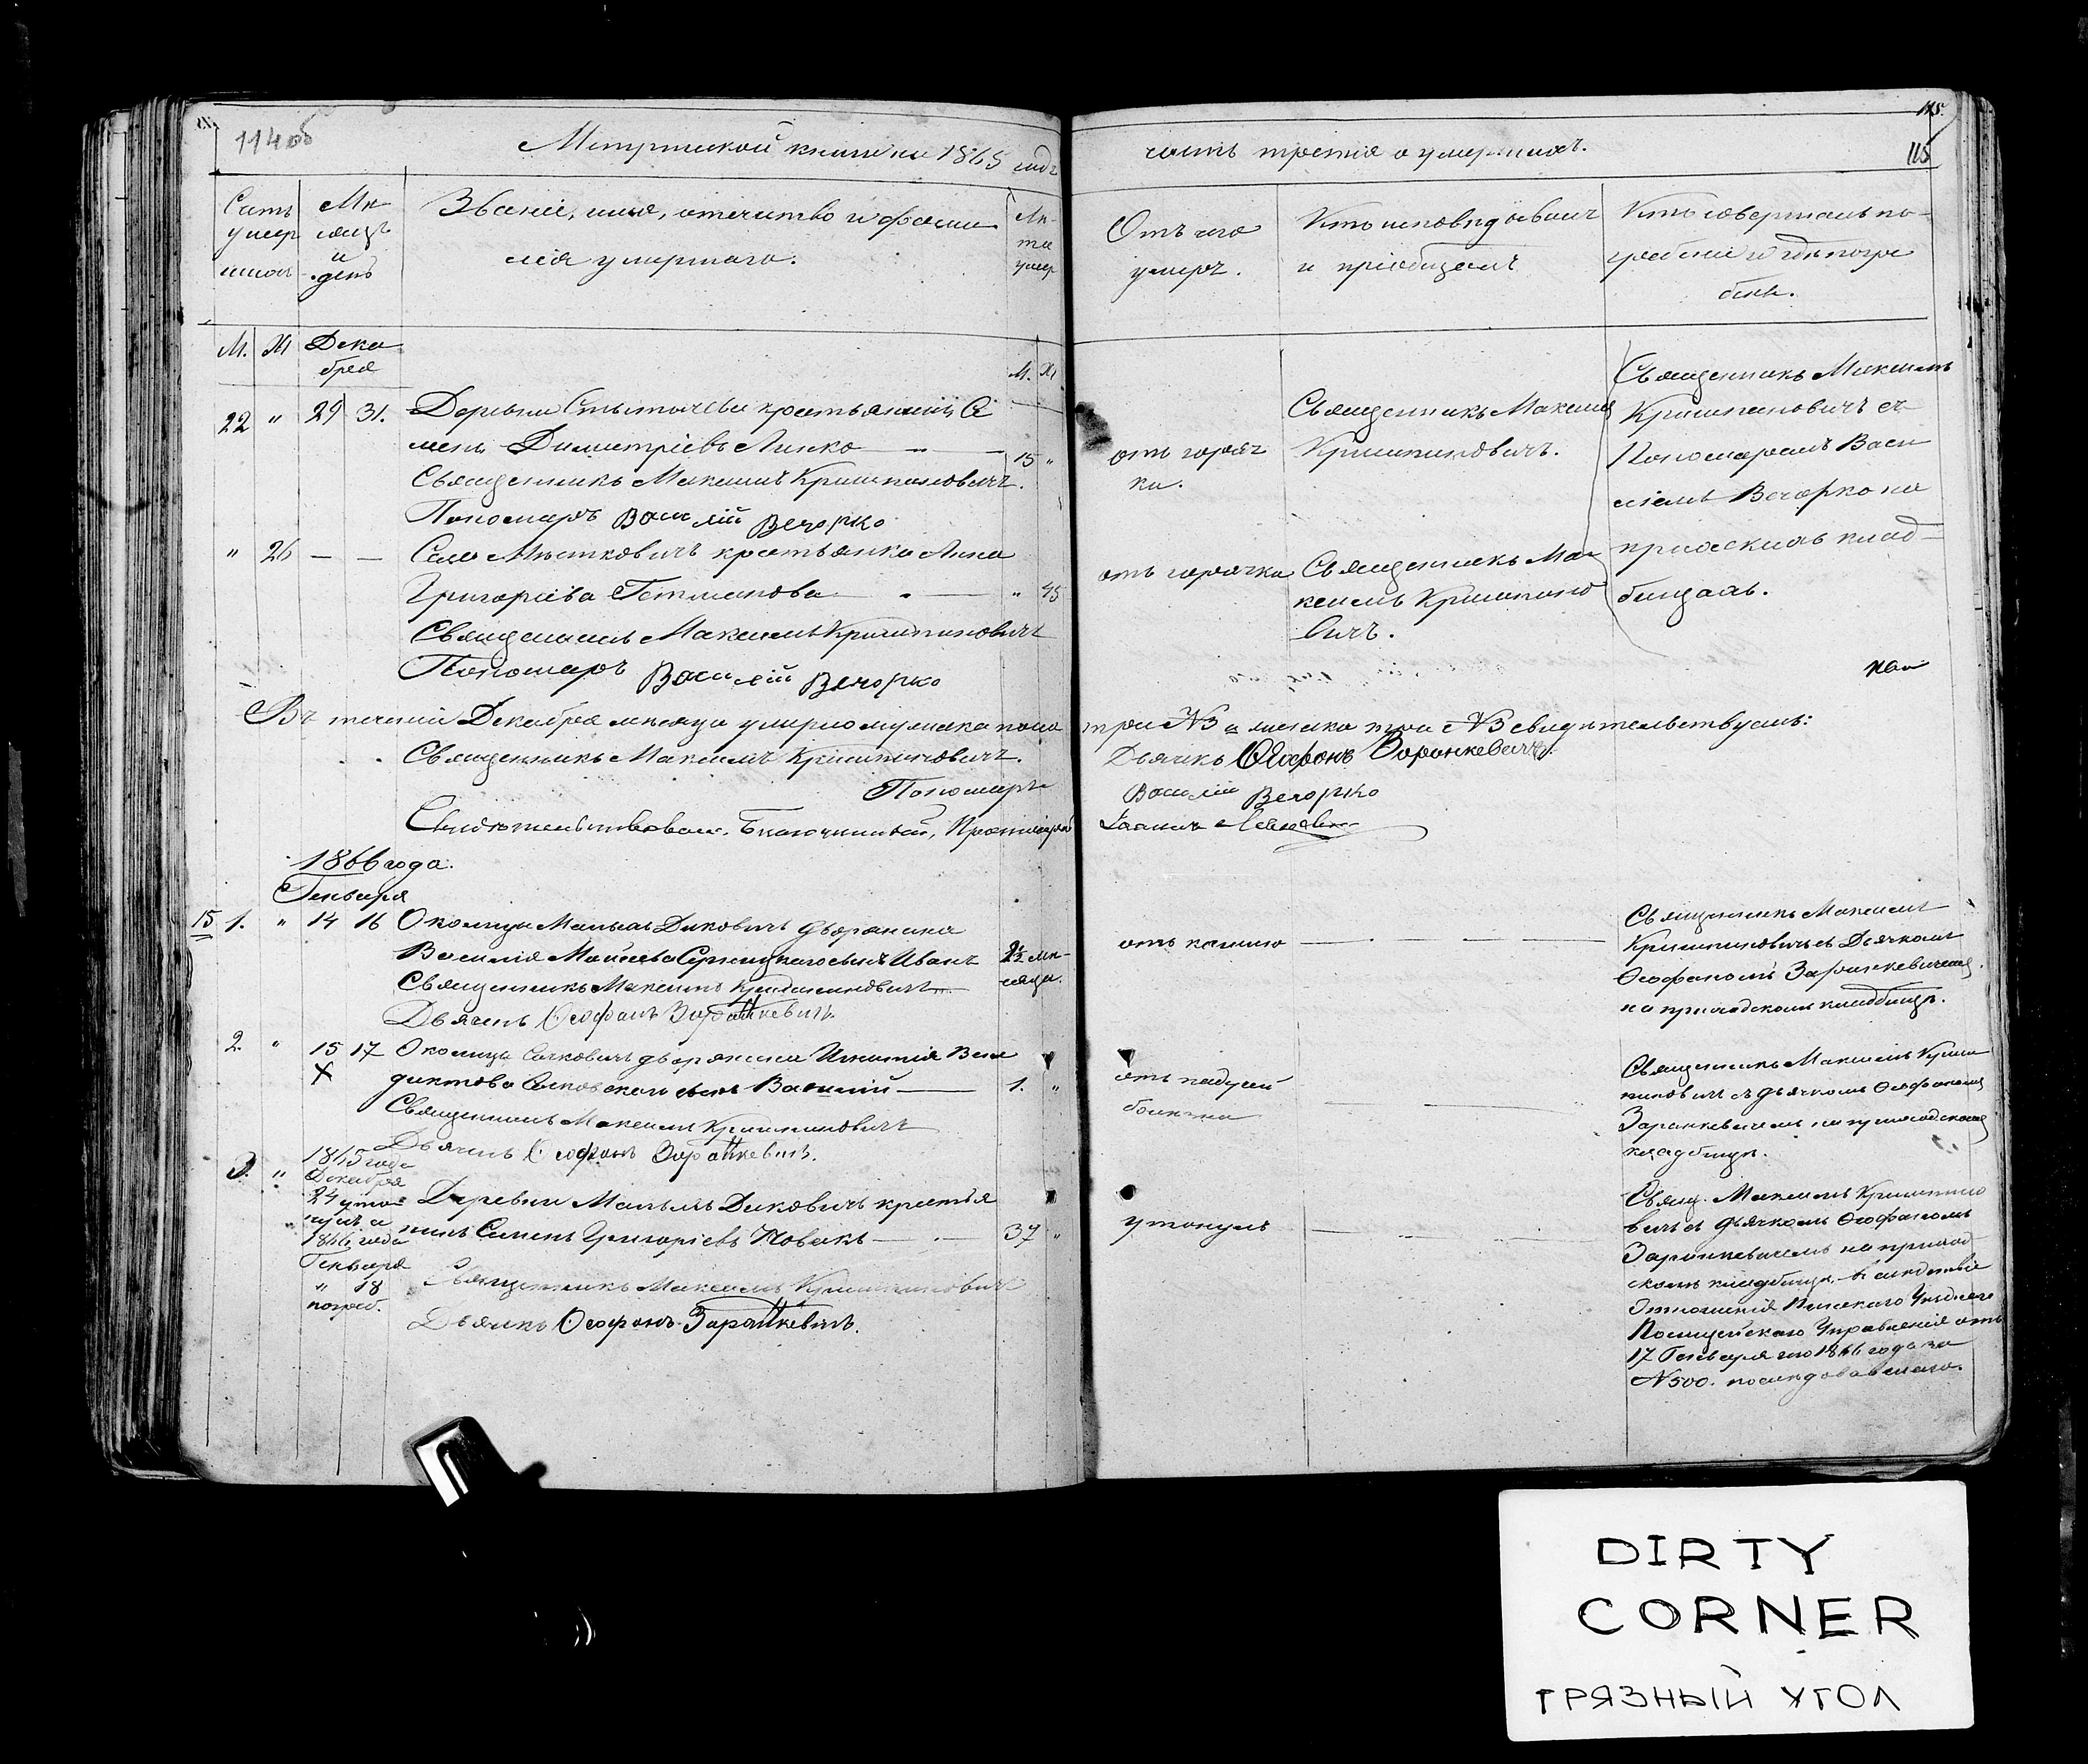 114об
Метрической книги на 1865 годъ
часть третія о умершихъ.
115
115
Счетъ умер шихъ
Мѣ сяцъ и день
Званіе, имя, отчество и фами
лія умершаго.
Лѣ та умер
Отъ чего
умеръ.
Кто исповѣдывалъ
и пріобщалъ
Кто совершалъ по-
гребеніе и гдѣ погре
бенъ.
М. Ж Дека
бря
М. Ж
22 " 29 31. Деревни крестьянинъ Се
менъ Димитріевъ Линко 15 "
Священникъ Максимъ Криштиновичъ.
Пономарь Василій Вечорко
отъ горяч
ки.
Священникъ Максимъ
Криштиновичъ.
Священникъ Максимъ
Криштиновичъ съ
Пономаремъ Васи
ліемъ Вечорко на
приходскихъ клад-
бищахъ.
" 26 — — Село Мѣстковичъ крестьянка Анна
Григоріева Гетманова " 45
Священникъ Максимъ Криштиновичъ
Пономарь Василій Вечорко
отъ горячки
Священникъ Ма
ксимъ Криштино
вичъ.
Въ теченіи Декабря мѣсяца умерло мужеска пола
три №3 а женска три №3 свидѣтельствуемъ:
Священникъ Максимъ Криштиновичъ.
Дьячекъ Ѳеофанъ Заранкевичъ.
Пономарь
Василій Вечорко
Свидѣтельствовалъ Благочинный, Протоіерей
1866 года.
Генваря
15 1. " 14 16 Околицы Малыхъ Диковичъ дворянина
Василія Моисеева сынъ Иванъ 2½ мѣ-
сяца.
Священникъ Максимъ Криштиновичъ
Дьячекъ Ѳеофанъ Заранкевичъ.
отъ кашлю
Священникъ Максимъ
Криштиновичъ съ Дьячкомъ
Ѳеофаномъ Заранкевичемъ
на приходскомъ кладбищѣ.
2. " 15 17 Околицы Сачковичъ дворянина Игнатія Вене
диктова Сачковскаго сынъ Василій 1. "
Священникъ Максимъ Криштиновичъ
Дьячекъ Ѳеофанъ Заранкевичъ.
отъ падучей
болѣзни
Священникъ Максимъ Кришти
новичъ съ дьячкомъ Ѳеофаномъ
Заранкевичемъ на приходскомъ
кладбищѣ.
3. " 1865 года
Декабря
24 уто-
нулъ а
1866 года
Генваря
" 18
погреб.
Деревни Малыхъ Диковичъ крестья
нинъ Семенъ Григоріевъ Новакъ 37 "
Священникъ Максимъ Криштиновичъ
Дьячекъ Ѳеофанъ Заранкевичъ.
утонулъ
Свящ. Максимъ Криштино
вичъ съ дьячкомъ Ѳеофаномъ
Заранкевичемъ на приход-
скомъ кладбищѣ, вслѣдствіе
Отношенія Пинскаго Уѣзднаго
Полицейскаго Управленія отъ
17 Генваря сего 1866 года за
№500. послѣдовавшаго.
DIRTY
CORNER
ГРЯЗНЫЙ УГОЛ